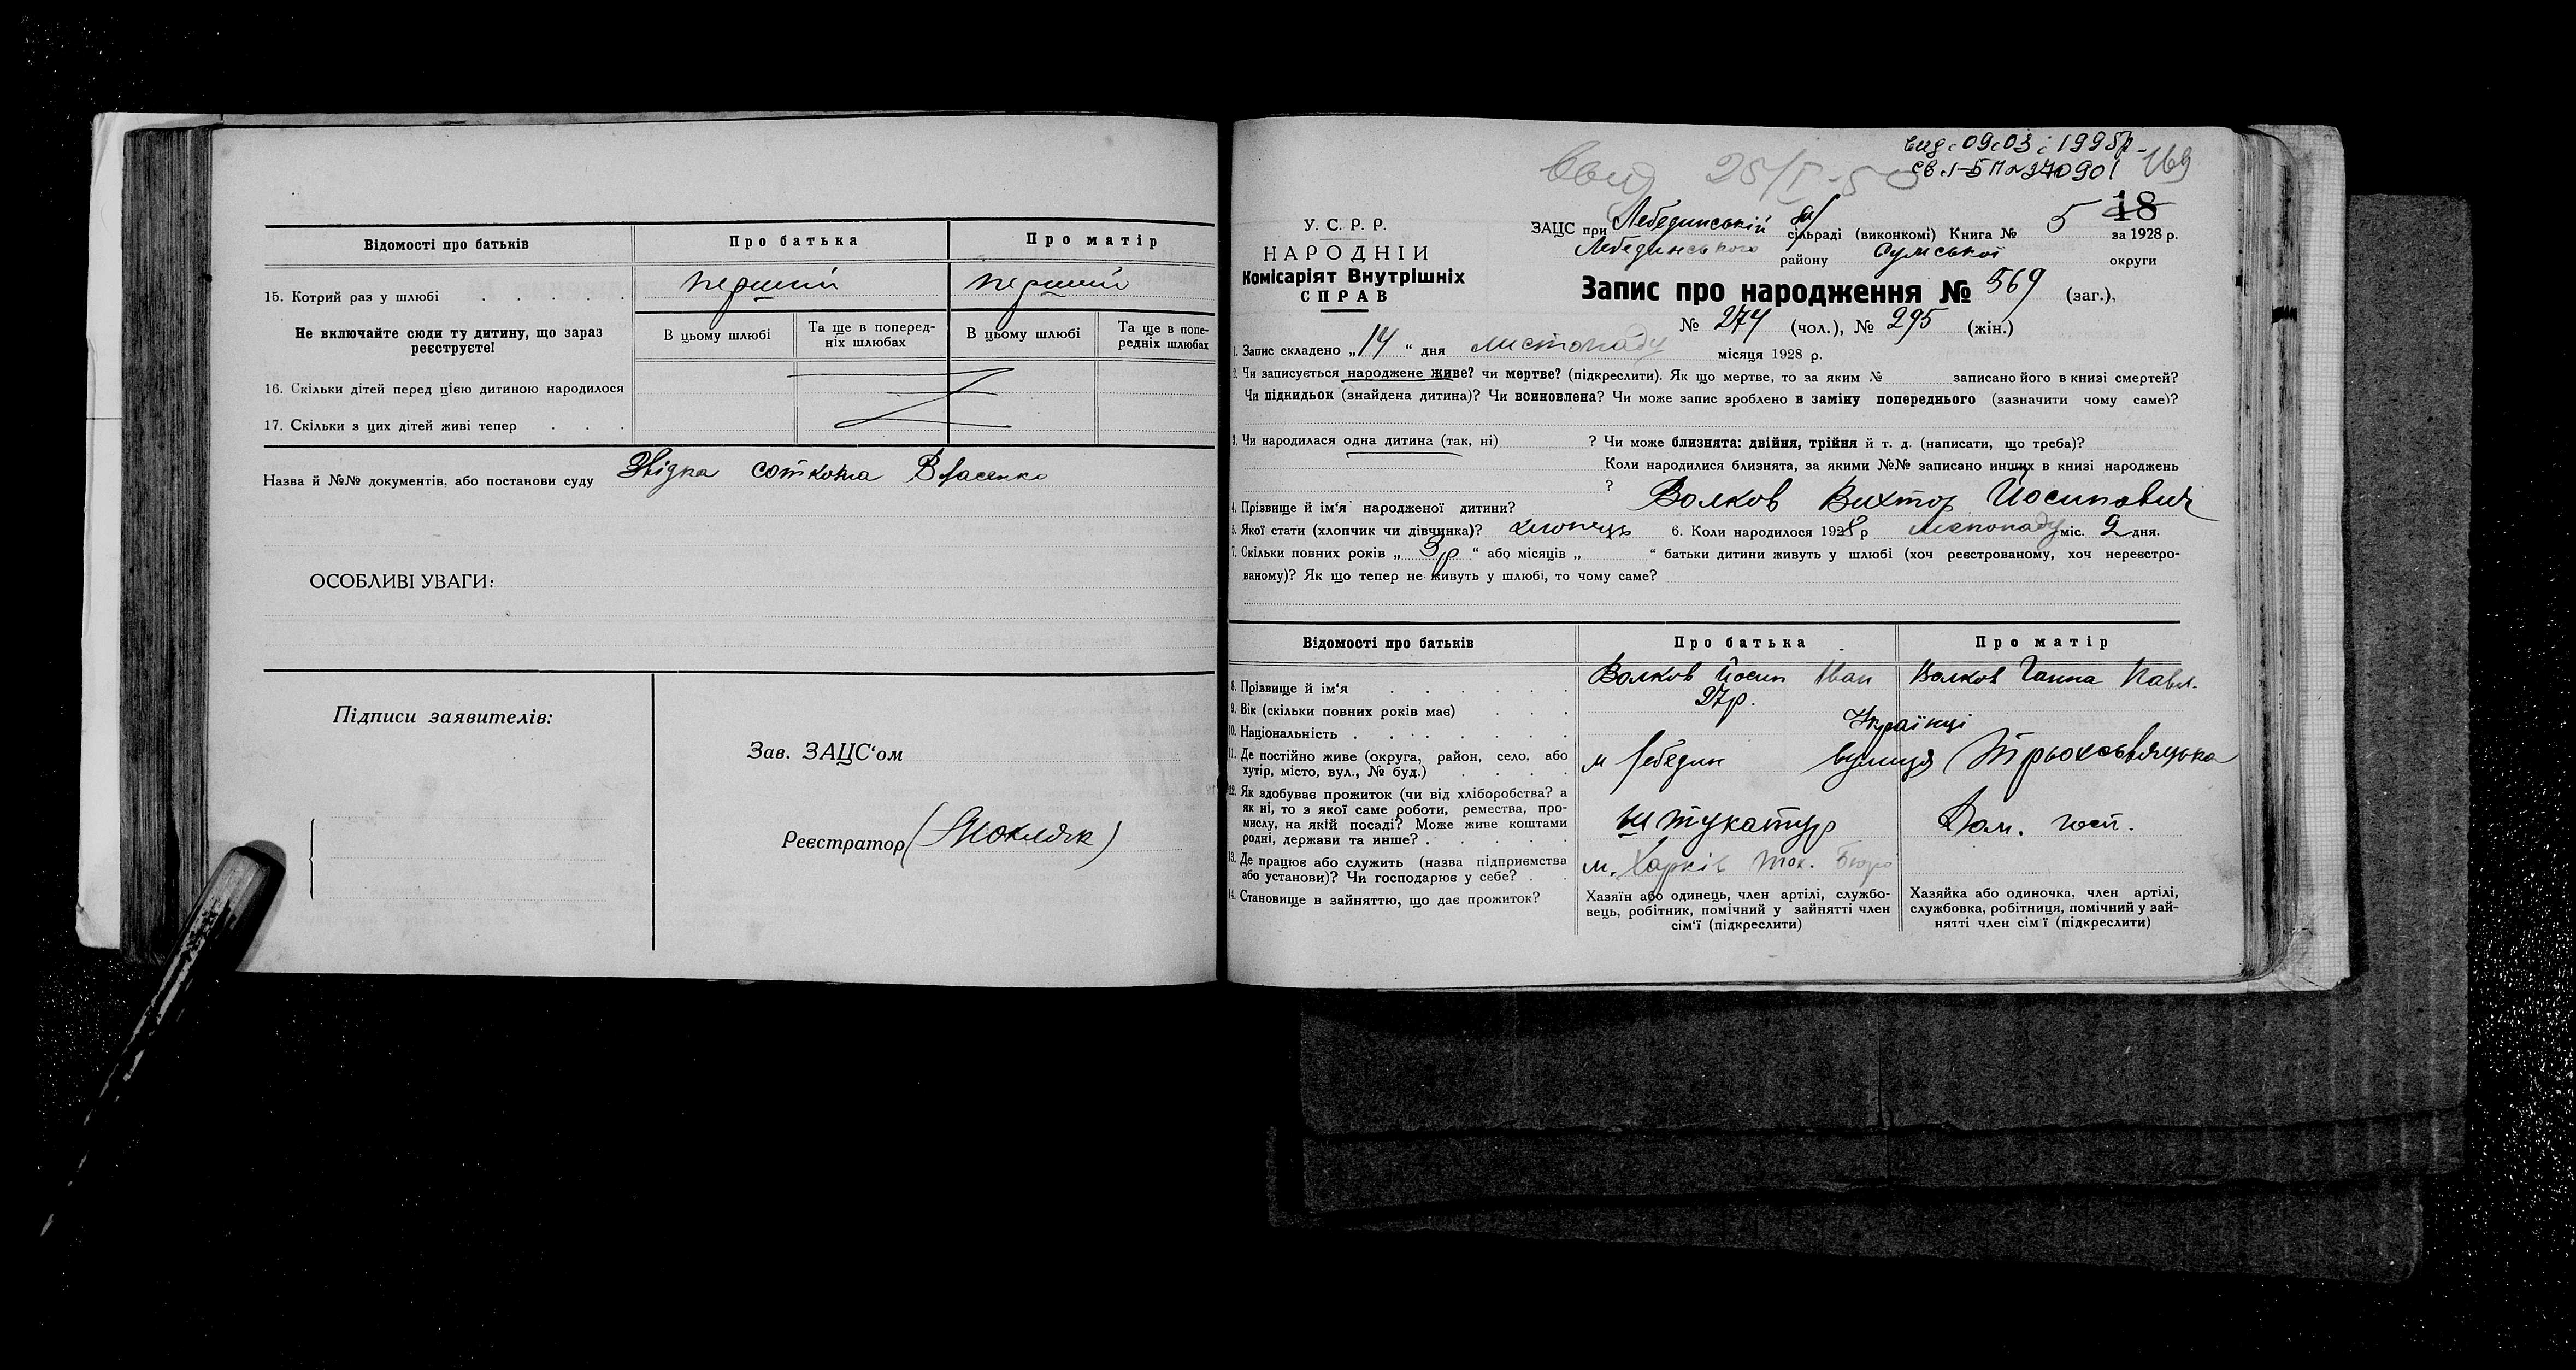 Відомості про батьків
Про батька
Про матір
15. Котрий раз у шлюбі
перший
перший
Не включайте сюди ту дитину, що зараз
реєструєте!
В цьому шлюбі
Та ще в поперед-
ніх шлюбах
В цьому шлюбі
Та ще в попе-
редніх шлюбах
16. Скільки дітей перед цією дитиною народилося
17. Скільки з цих дітей живі тепер
Назва й №№ документів, або постанови суду
Звідка соткома Власенко
ОСОБЛИВІ УВАГИ:
Підписи заявителів:
Зав. ЗАЦС‘ом
Реєстратор (Токляк)
вид. 09.03.1995р
169
25/I-50
18
У. С. Р. Р.
НАРОДНІЙ
Комісаріят Внутрішніх
СПРАВ
ЗАЦС при Лебединській сільраді (виконкомі) Книга № 5 за 1928 р.
Лебединського району Сумської округи
Запис про народження № 569 (заг.),
№ 274 (чол.), № 295 (жін.)
1. Запис складено „14“ дня листопаду місяця 1928 р.
2. Чи записується народжене живе? чи мертве? (підкреслити). Як що мертве, то за яким № записано його в книзі смертей?
Чи підкидьок (знайдена дитина)? Чи всиновлена? Чи може запис зроблено в заміну попереднього (зазначити чому саме)?
3. Чи народилася одна дитина (так, ні) ? Чи може близнята: двійня, трійня й т. д. (написати, що треба)?
Коли народилися близнята, за якими №№ записано инших в книзі народжень
?
4. Прізвище й ім‘я народженої дитини? Волков Виктор Йосипович
5. Якої стати (хлопчик чи дівчинка)? хлопець 6. Коли народилося 1928 р листопаду міс. 9 дня.
7. Скільки повних років „3р“ або місяців „ “ батьки дитини живуть у шлюбі (хоч реєстрованому, хоч нереєстро-
ваному)? Як що тепер не живуть у шлюбі, то чому саме?
Відомості про батьків
Про батька
Про матір
8. Прізвище й ім‘я
Волков Йосип Іван
Волков Ганна Павл.
9. Вік (скільки повних років має)
27р.
10. Національність
Українці
11. Де постійно живе (округа, район, село, або
хутір, місто, вул., № буд.)
м Лебедин вулиця Трьохсвяцька
12. Як здобуває прожиток (чи від хліборобства? а
як ні, то з якої саме роботи, ремества, про-
мислу, на якій посаді? Може живе коштами
родні, держави та инше?
штукатур
Дом. госп.
13. Де працює або служить (назва підприємства
або установи)? Чи господарює у себе?
м. Харків Бюро
14. Становище в зайняттю, що дає прожиток?
Хазяїн або одинець, член артілі, службо-
вець, робітник, помічний у зайнятті член
сім‘ї (підкреслити)
Хазяйка або одиночка, член артілі,
службовка, робітниця, помічний у зай-
нятті член сім‘ї (підкреслити)